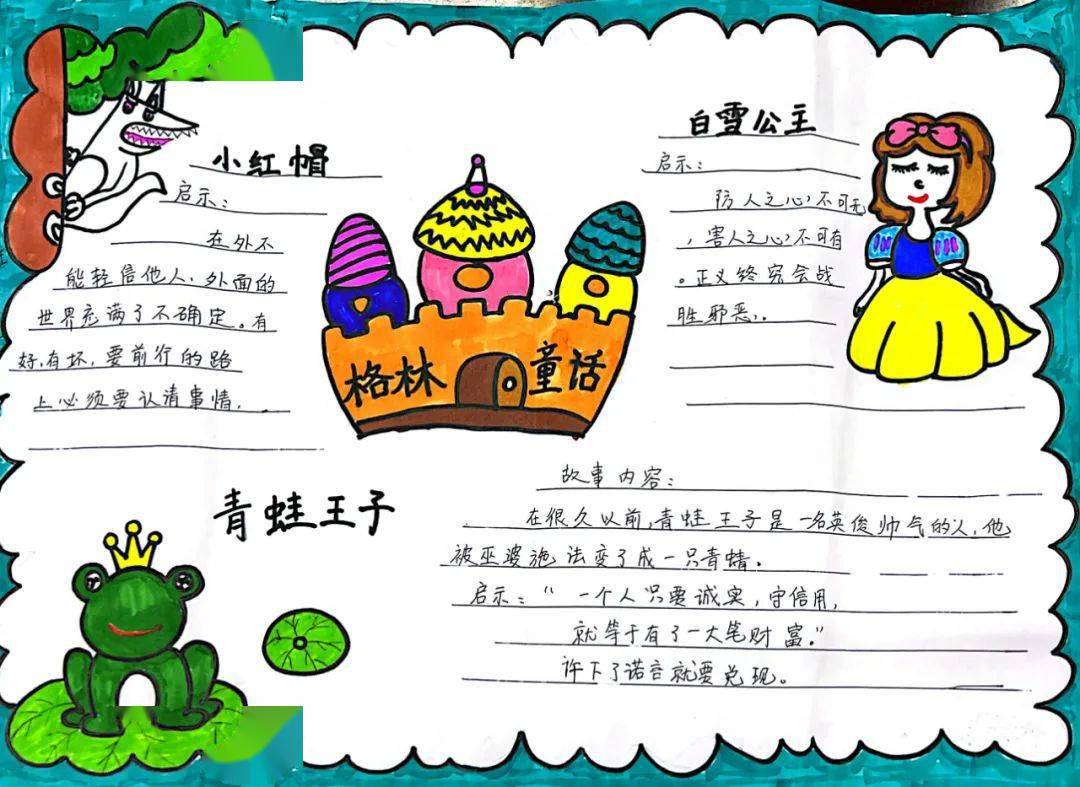 小红帽
启示：
在外不
能轻信他人，外面的
世界充满了不确定。有
好，有坏，要前行的路
上必须要认清事情，
格林童话
白雪公主
启示：
防人之心不可无
，害人之心不可有
。正义终究会战
胜邪恶。
青蛙王子
故事内容：
在很久以前，青蛙王子是一名英俊帅气的人，他
被巫婆施法变了成一只青蜻。
启示：“一个人只要诚实，守信用，
就等于有了一大笔财富。”
许下了诺言就要兑现。